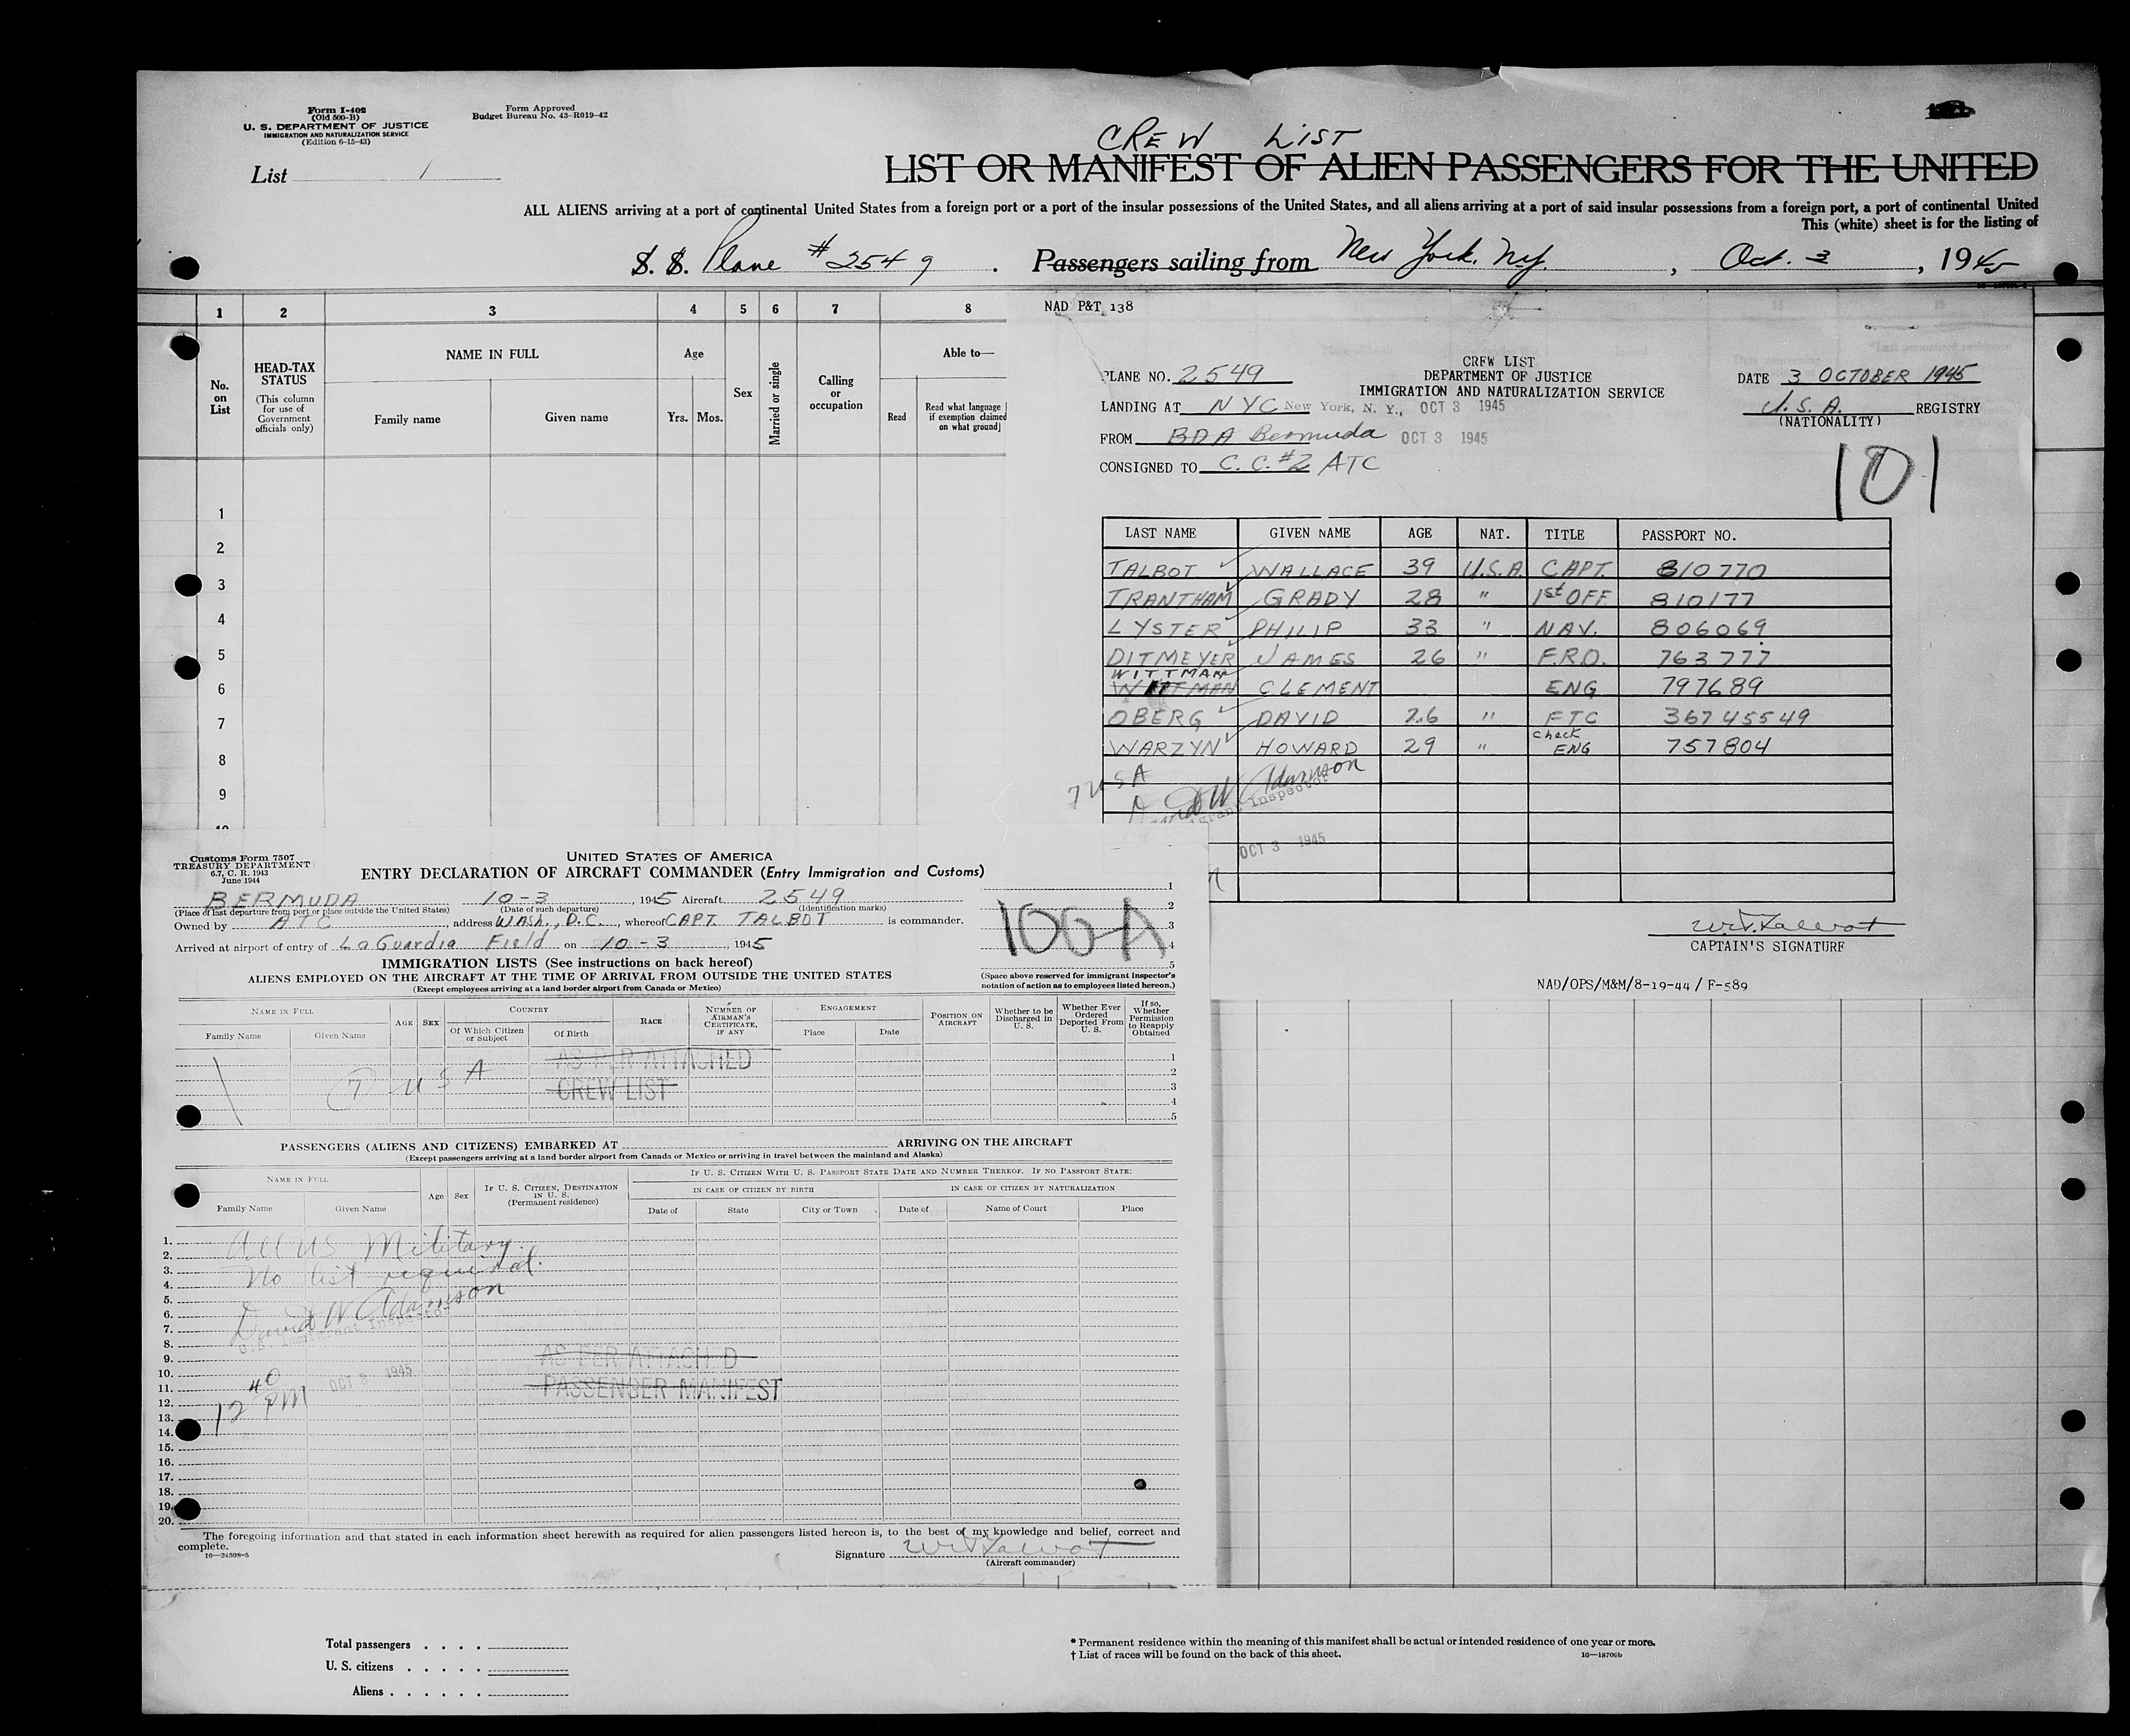 Form I-402
(Old 500-B)
U. S. DEPARTMENT OF JUSTICE
IMMIGRATION AND NATURALIZATION SERVICE
(Edition 6-15-43)
Form Approved
Budget Bureau No. 43-R019-42
List 1
CREW LIST
LIST OR MANIFEST OF ALIEN PASSENGERS FOR THE UNITED
ALL ALIENS arriving at a port of continental United States from a foreign port or a port of the insular possessions of the United States, and all aliens arriving at a port of said insular possessions from a foreign port, a port of continental United
This (white) sheet is for the listing of
S. S. Plane #2549 . Passengers sailing from New York, N.Y. , Oct. 3 , 1945
1 2 3 4 5 6 7 8
No. on List
HEAD-TAX STATUS
(This column for use of Government officials only)
NAME IN FULL
Family name Given name
Age
Yrs. Mos.
Sex
Married or single
Calling or occupation
Able to—
Read
Read what language
if exemption claimed
on what ground]
1
2
3
4
5
6
7
8
9
NAD P&T 138
CREW LIST
DEPARTMENT OF JUSTICE
IMMIGRATION AND NATURALIZATION SERVICE
PLANE NO. 2549
DATE 3 OCTOBER 1945
LANDING AT NYC New York, N. Y., OCT 3 1945
U.S.A. REGISTRY
(NATIONALITY)
FROM BDA Bermuda OCT 3 1945
CONSIGNED TO C.C.#2 ATC
101
LAST NAME GIVEN NAME AGE NAT. TITLE PASSPORT NO.
TALBOT WALLACE 39 U.S.A. CAPT. 810770
TRANTHAM GRADY 28 " 1st OFF 810177
LYSTER PHILIP 33 " NAV. 806069
DITMEYER JAMES 26 " F.R.O. 763777
WITTMAN CLEMENT ENG 797689
OBERG DAVID 26 " FTC 36745549
WARZYN HOWARD 29 " check ENG 757804
7 USA
David W Adamson
Immigrant Inspector
OCT 3 1945
W.T. Talbot
CAPTAIN'S SIGNATURE
NAD/OPS/M&M/8-19-44 / F-589
Customs Form 7507
TREASURY DEPARTMENT
6.7, C. R. 1943
June 1944
UNITED STATES OF AMERICA
ENTRY DECLARATION OF AIRCRAFT COMMANDER (Entry Immigration and Customs)
BERMUDA 10-3 , 1945 Aircraft 2549
(Place of last departure from port or place outside the United States) (Date of such departure) (Identification marks)
Owned by ATC , address Wash., D.C. , whereof CAPT. TALBOT is commander.
Arrived at airport of entry of LaGuardia Field on 10-3 , 1945
1
2
3
4
5
100-A
(Space above reserved for immigrant inspector's
notation of action as to employees listed hereon.)
IMMIGRATION LISTS (See instructions on back hereof)
ALIENS EMPLOYED ON THE AIRCRAFT AT THE TIME OF ARRIVAL FROM OUTSIDE THE UNITED STATES
(Except employees arriving at a land border airport from Canada or Mexico)
NAME IN FULL
Family Name Given Name
AGE SEX
COUNTRY
Of Which Citizen or Subject Of Birth
RACE
NUMBER OF AIRMAN'S CERTIFICATE, IF ANY
ENGAGEMENT
Place Date
POSITION ON AIRCRAFT
Whether to be Discharged in U. S.
Whether Ever Ordered Deported From U. S.
If so, Whether Permission to Reapply Obtained
AS PER ATTACHED
CREW LIST
7 USA
1
2
3
4
5
PASSENGERS (ALIENS AND CITIZENS) EMBARKED AT ARRIVING ON THE AIRCRAFT
(Except passengers arriving at a land border airport from Canada or Mexico or arriving in travel between the mainland and Alaska)
NAME IN FULL
Family Name Given Name
Age Sex
IF U. S. CITIZEN, DESTINATION IN U. S.
(Permanent residence)
IF U. S. CITIZEN WITH U. S. PASSPORT STATE DATE AND NUMBER THEREOF. IF NO PASSPORT STATE:
IN CASE OF CITIZEN BY BIRTH IN CASE OF CITIZEN BY NATURALIZATION
Date of State City or Town Date of Name of Court Place
1.
2.
3.
4.
5.
6.
7.
8.
9.
10.
11.
12.
13.
14.
15.
16.
17.
18.
19.
20.
All US Military.
No list required.
David W Adamson
U.S. Immigrant Inspector
OCT 3 1945
12 40 PM
AS PER ATTACH D
PASSENGER MANIFEST
The foregoing information and that stated in each information sheet herewith as required for alien passengers listed hereon is, to the best of my knowledge and belief, correct and
complete.
16—24598-5
Signature W.T. Talbot
(Aircraft commander)
Total passengers . . . .
U. S. citizens . . . . .
Aliens . . . . . .
* Permanent residence within the meaning of this manifest shall be actual or intended residence of one year or more.
† List of races will be found on the back of this sheet.
16—18706b